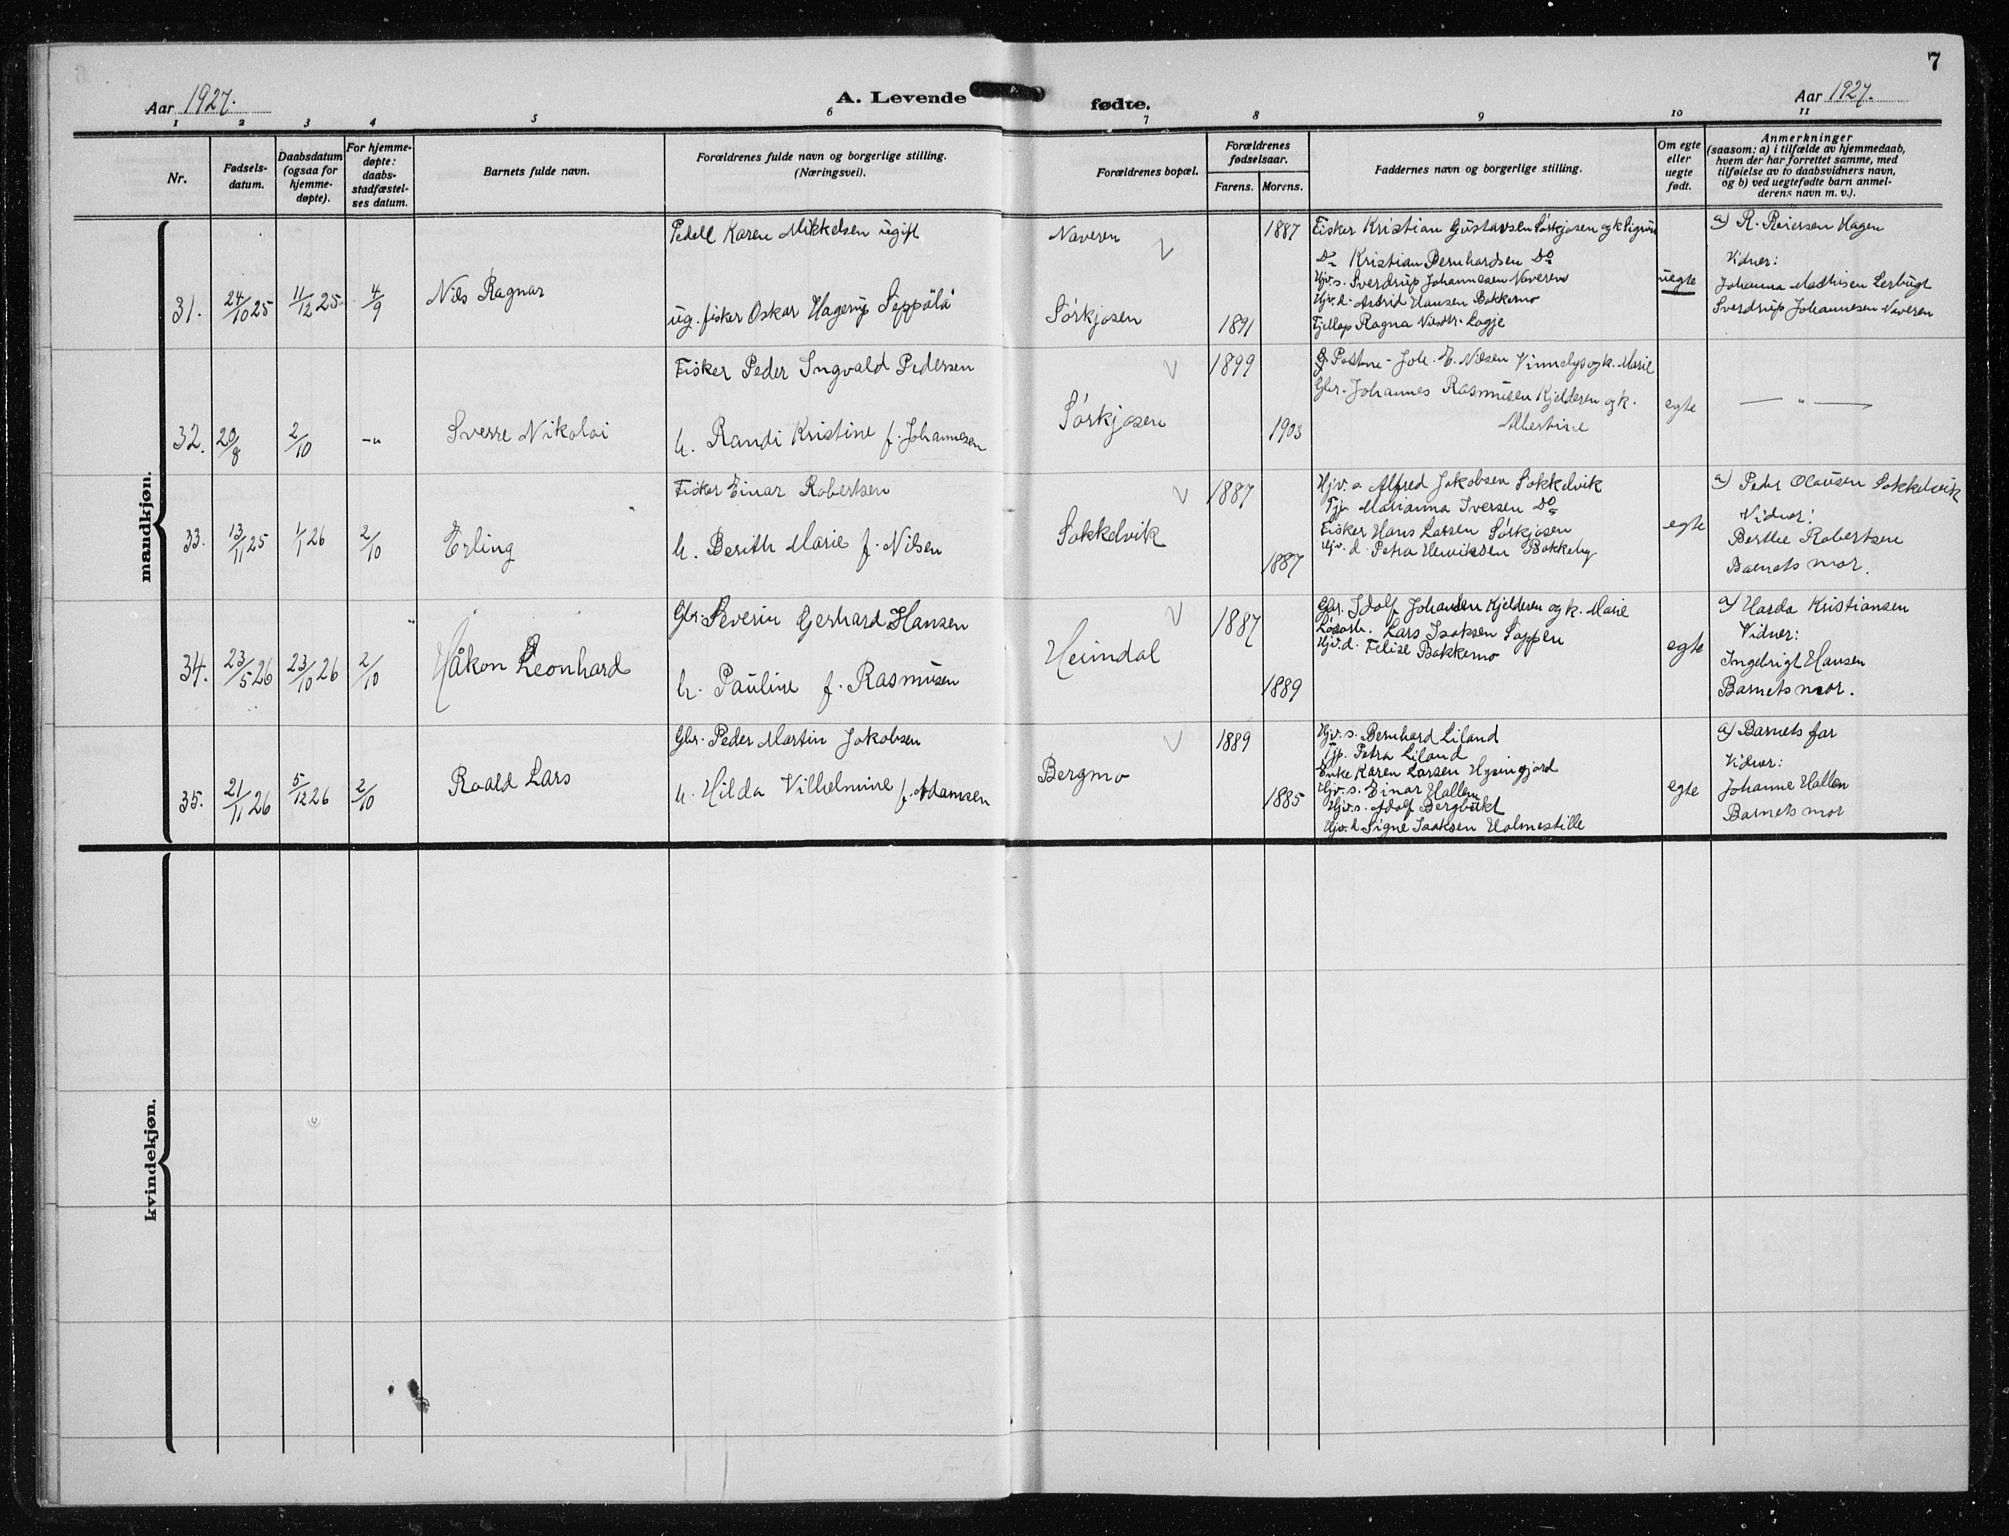 7
Aar 1927.
A. Levende fødte.
Aar 1927.
1 2 3 4 5 6 7 8 9 10 11
Nr.
Fødsels-
datum.
Daabsdatum
(ogsaa for
hjemme-
døpte).
For hjemme-
døpte:
daabs-
stadfæstel-
ses datum.
Barnets fulde navn.
Forældrenes fulde navn og borgerlige stilling.
(Næringsvei).
Forældrenes bopæl.
Forældrenes
fødselsaar.
Farens. Morens.
Faddernes navn og borgerlige stilling.
Om egte
eller
uegte
født.
Anmerkninger
(saasom: a) i tilfælde av hjemmedaab,
hvem der har forrettet samme, med
tilføielse av to daabsvidners navn,
og b) ved uegtefødte barn anmel-
derens navn m. v.).
mandkjøn.
31. 24/10 25 11/12 25 4/9
Nils Ragnar
Karen Mikkelsen ugift
ug. fisker Oskar Hagerup Seppälä
Naveren
Sørkjosen
1891
1887
Fisker Kristian Gustavsen Sørkjosen og k. Sigrun
Do Kristian Bernhardsen Do
Hjv. s. Sverdrup Johannesen Naveren
Hjv. d. Astrid Hansen Bakkemo
Fjellap Ragna Nilsdtr. Logje
uegte
a) R. Reiersen Hagen
Vidner:
Johanna Mathisen Lerbugt
Sverdrup Johannesen Naveren
32. 20/8 2/10 -"-
Sverre Nikolai
Fisker Peder Ingvald Pedersen
h. Randi Kristine f. Johannesen
Sørkjosen
1899
1903
Joh. E. Nilsen Vinnelys og k. Marie
Gbr. Johannes Rasmusen Kjelderen og k.
Albertine
egte
— " —
33. 13/11 25 1/1 26 2/10
Erling
Fisker Einar Robertsen
h. Berith Marie f. Nilsen
Sokkelvik
1887
1887
Hjv. s. Alfred Jakobsen Sokkelvik
Tjp. Marianna Iversen Do
Fisker Hans Larsen Sørkjosen
Hjv. d. Petra Henriksen Bakkeby
egte
a) Peder Olausen Sokkelvik
Vidner:
Berthe Robertsen
Barnets mor.
34. 23/5 26 23/10 26 2/10
Håkon Leonhard
Gbr. Severin Gerhard Hansen
h. Pauline f. Rasmusen
Heimdal
1887
1889
Gbr. Idolf Johansen Kjelderen og k. Marie
Løsarb. Lars Isaksen Sappen
Hjv. d. Felise Bakkemo
egte
a) Harda Kristiansen
Vidner:
Ingebrigt Hansen
Barnets mor.
35. 21/11 26 5/12 26 2/10
Roald Lars
Gbr. Peder Martin Jakobsen
h. Hilda Vilhelmine f. Adamsen
Bergmo
1889
1885
Hjv. s. Bernhard Liland
Tjp. Petra Liland
Enke Karen Larsen Hysingjord
Hjv. s. Einar Hallen
Hjv. s. Adolf Bergbukt
Hjv. d. Signe Isaksen Holmestille
egte
a) Barnets far
Vidner:
Johanne Hallen
Barnets mor
kvindekjøn.